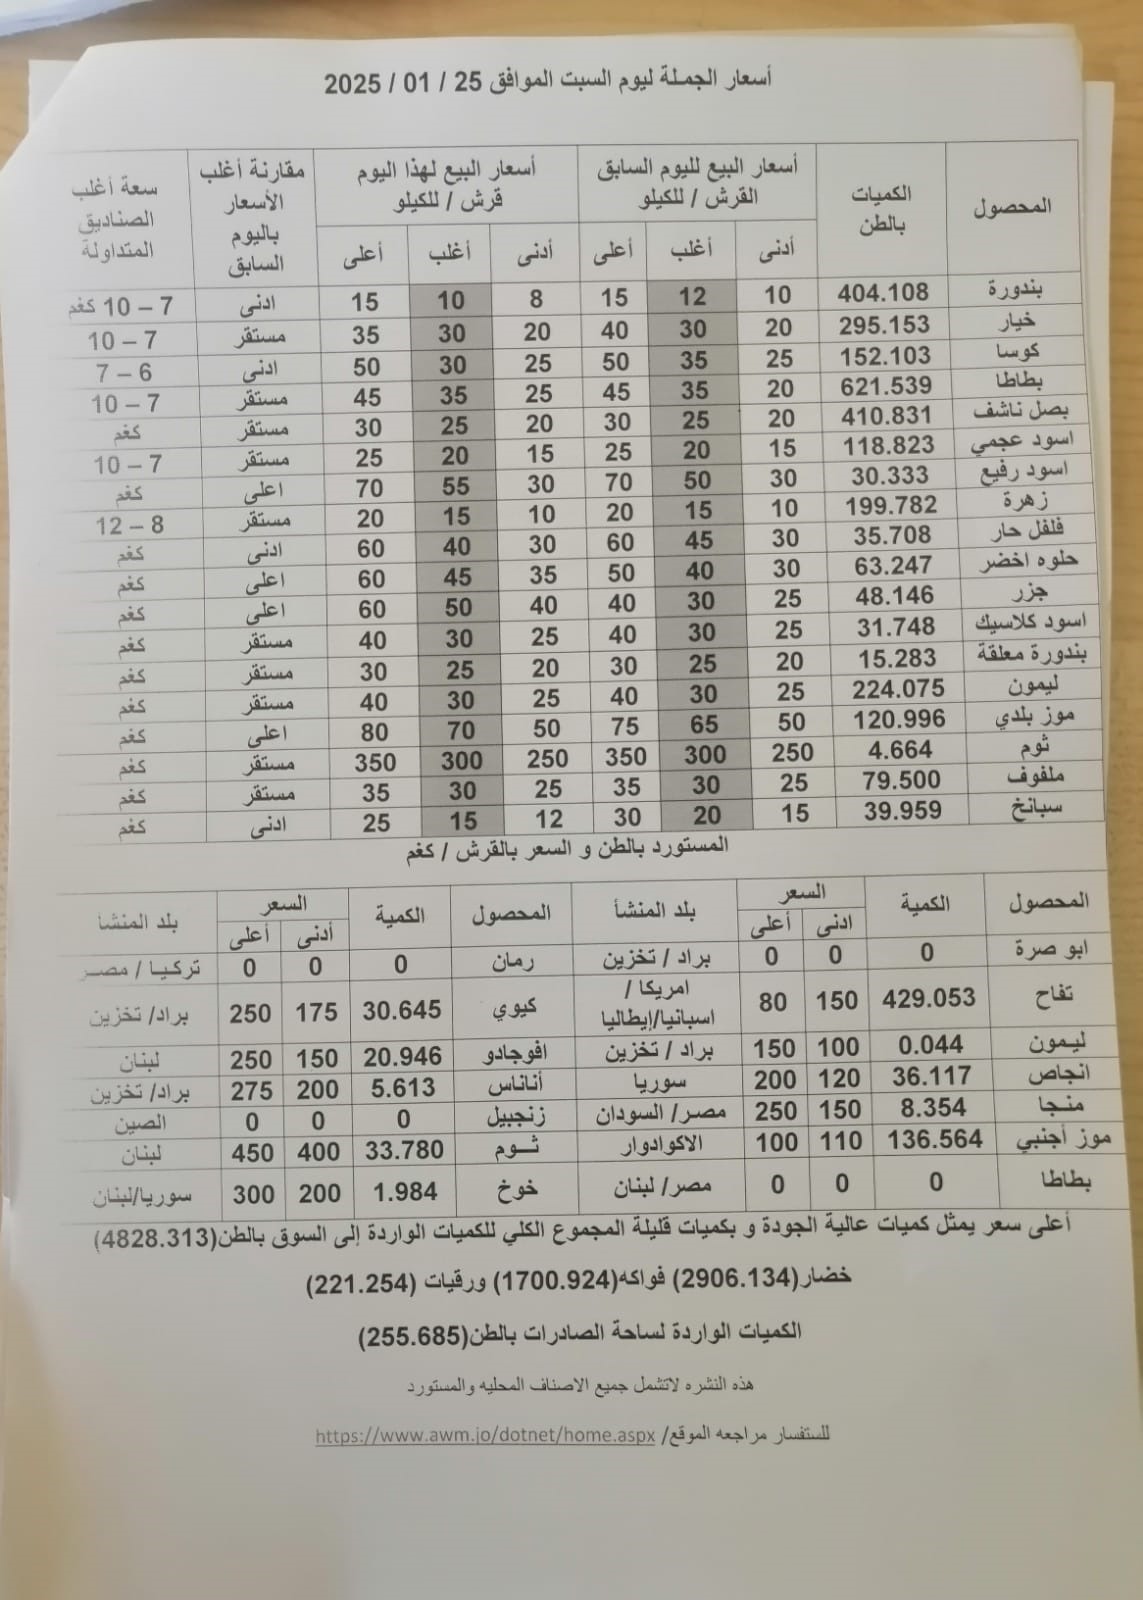 أسعار الجملة ليوم السبت الموافق 25 / 01 / 2025
المحصول الكميات بالطن أسعار البيع لليوم السابق القرش / للكيلو أسعار البيع لهذا اليوم قرش / للكيلو مقارنة أغلب الأسعار باليوم السابق سعة أغلب الصناديق المتداولة
أدنى أغلب أعلى أدنى أغلب أعلى
بندورة 404.108 10 12 15 8 10 15 ادنى 7 – 10 كغم
خيار 295.153 20 30 40 20 30 35 مستقر 7 – 10
كوسا 152.103 25 35 50 25 30 50 ادنى 6 – 7
بطاطا 621.539 20 35 45 25 35 45 مستقر 7 – 10
بصل ناشف 410.831 20 25 30 20 25 30 مستقر كغم
اسود عجمي 118.823 15 20 25 15 20 25 مستقر 7 – 10
اسود رفيع 30.333 30 50 70 30 55 70 اعلى كغم
زهرة 199.782 10 15 20 10 15 20 مستقر 8 – 12
فلفل حار 35.708 30 45 60 30 40 60 ادنى كغم
حلوه اخضر 63.247 30 40 50 35 45 60 اعلى كغم
جزر 48.146 25 30 40 40 50 60 اعلى كغم
اسود كلاسيك 31.748 25 30 40 25 30 40 مستقر كغم
بندورة معلقة 15.283 20 25 30 20 25 30 مستقر كغم
ليمون 224.075 25 30 40 25 30 40 مستقر كغم
موز بلدي 120.996 50 65 75 50 70 80 اعلى كغم
ثوم 4.664 250 300 350 250 300 350 مستقر كغم
ملفوف 79.500 25 30 35 25 30 35 مستقر كغم
سبانخ 39.959 15 20 30 12 15 25 ادنى كغم
المستورد بالطن و السعر بالقرش / كغم
المحصول الكمية السعر بلد المنشأ المحصول الكمية السعر بلد المنشأ
ادنى أعلى أدنى أعلى
ابو صرة 0 0 0 براد / تخزين رمان 0 0 0 تركيا / مصر
تفاح 429.053 150 80 امريكا / اسبانيا/إيطاليا كيوي 30.645 175 250 براد/ تخزين
ليمون 0.044 100 150 براد / تخزين افوجادو 20.946 150 250 لبنان
انجاص 36.117 120 200 سوريا أناناس 5.613 200 275 براد/ تخزين
منجا 8.354 150 250 مصر/ السودان زنجبيل 0 0 0 الصين
موز أجنبي 136.564 110 100 الاكوادوار ثوم 33.780 400 450 لبنان
بطاطا 0 0 0 مصر/ لبنان خوخ 1.984 200 300 سوريا/لبنان
أعلى سعر يمثل كميات عالية الجودة و بكميات قليلة المجموع الكلي للكميات الواردة إلى السوق بالطن(4828.313)
خضار(2906.134) فواكه(1700.924) ورقيات (221.254)
الكميات الواردة لساحة الصادرات بالطن(255.685)
هذه النشره لاتشمل جميع الاصناف المحليه والمستورد
للستفسار مراجعه الموقع/ https://www.awm.jo/dotnet/home.aspx